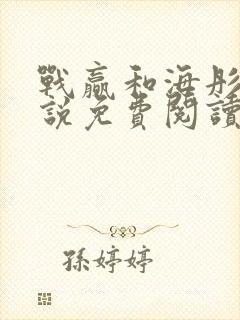 戰贏和海彤
說免費閱讀
孫婷婷